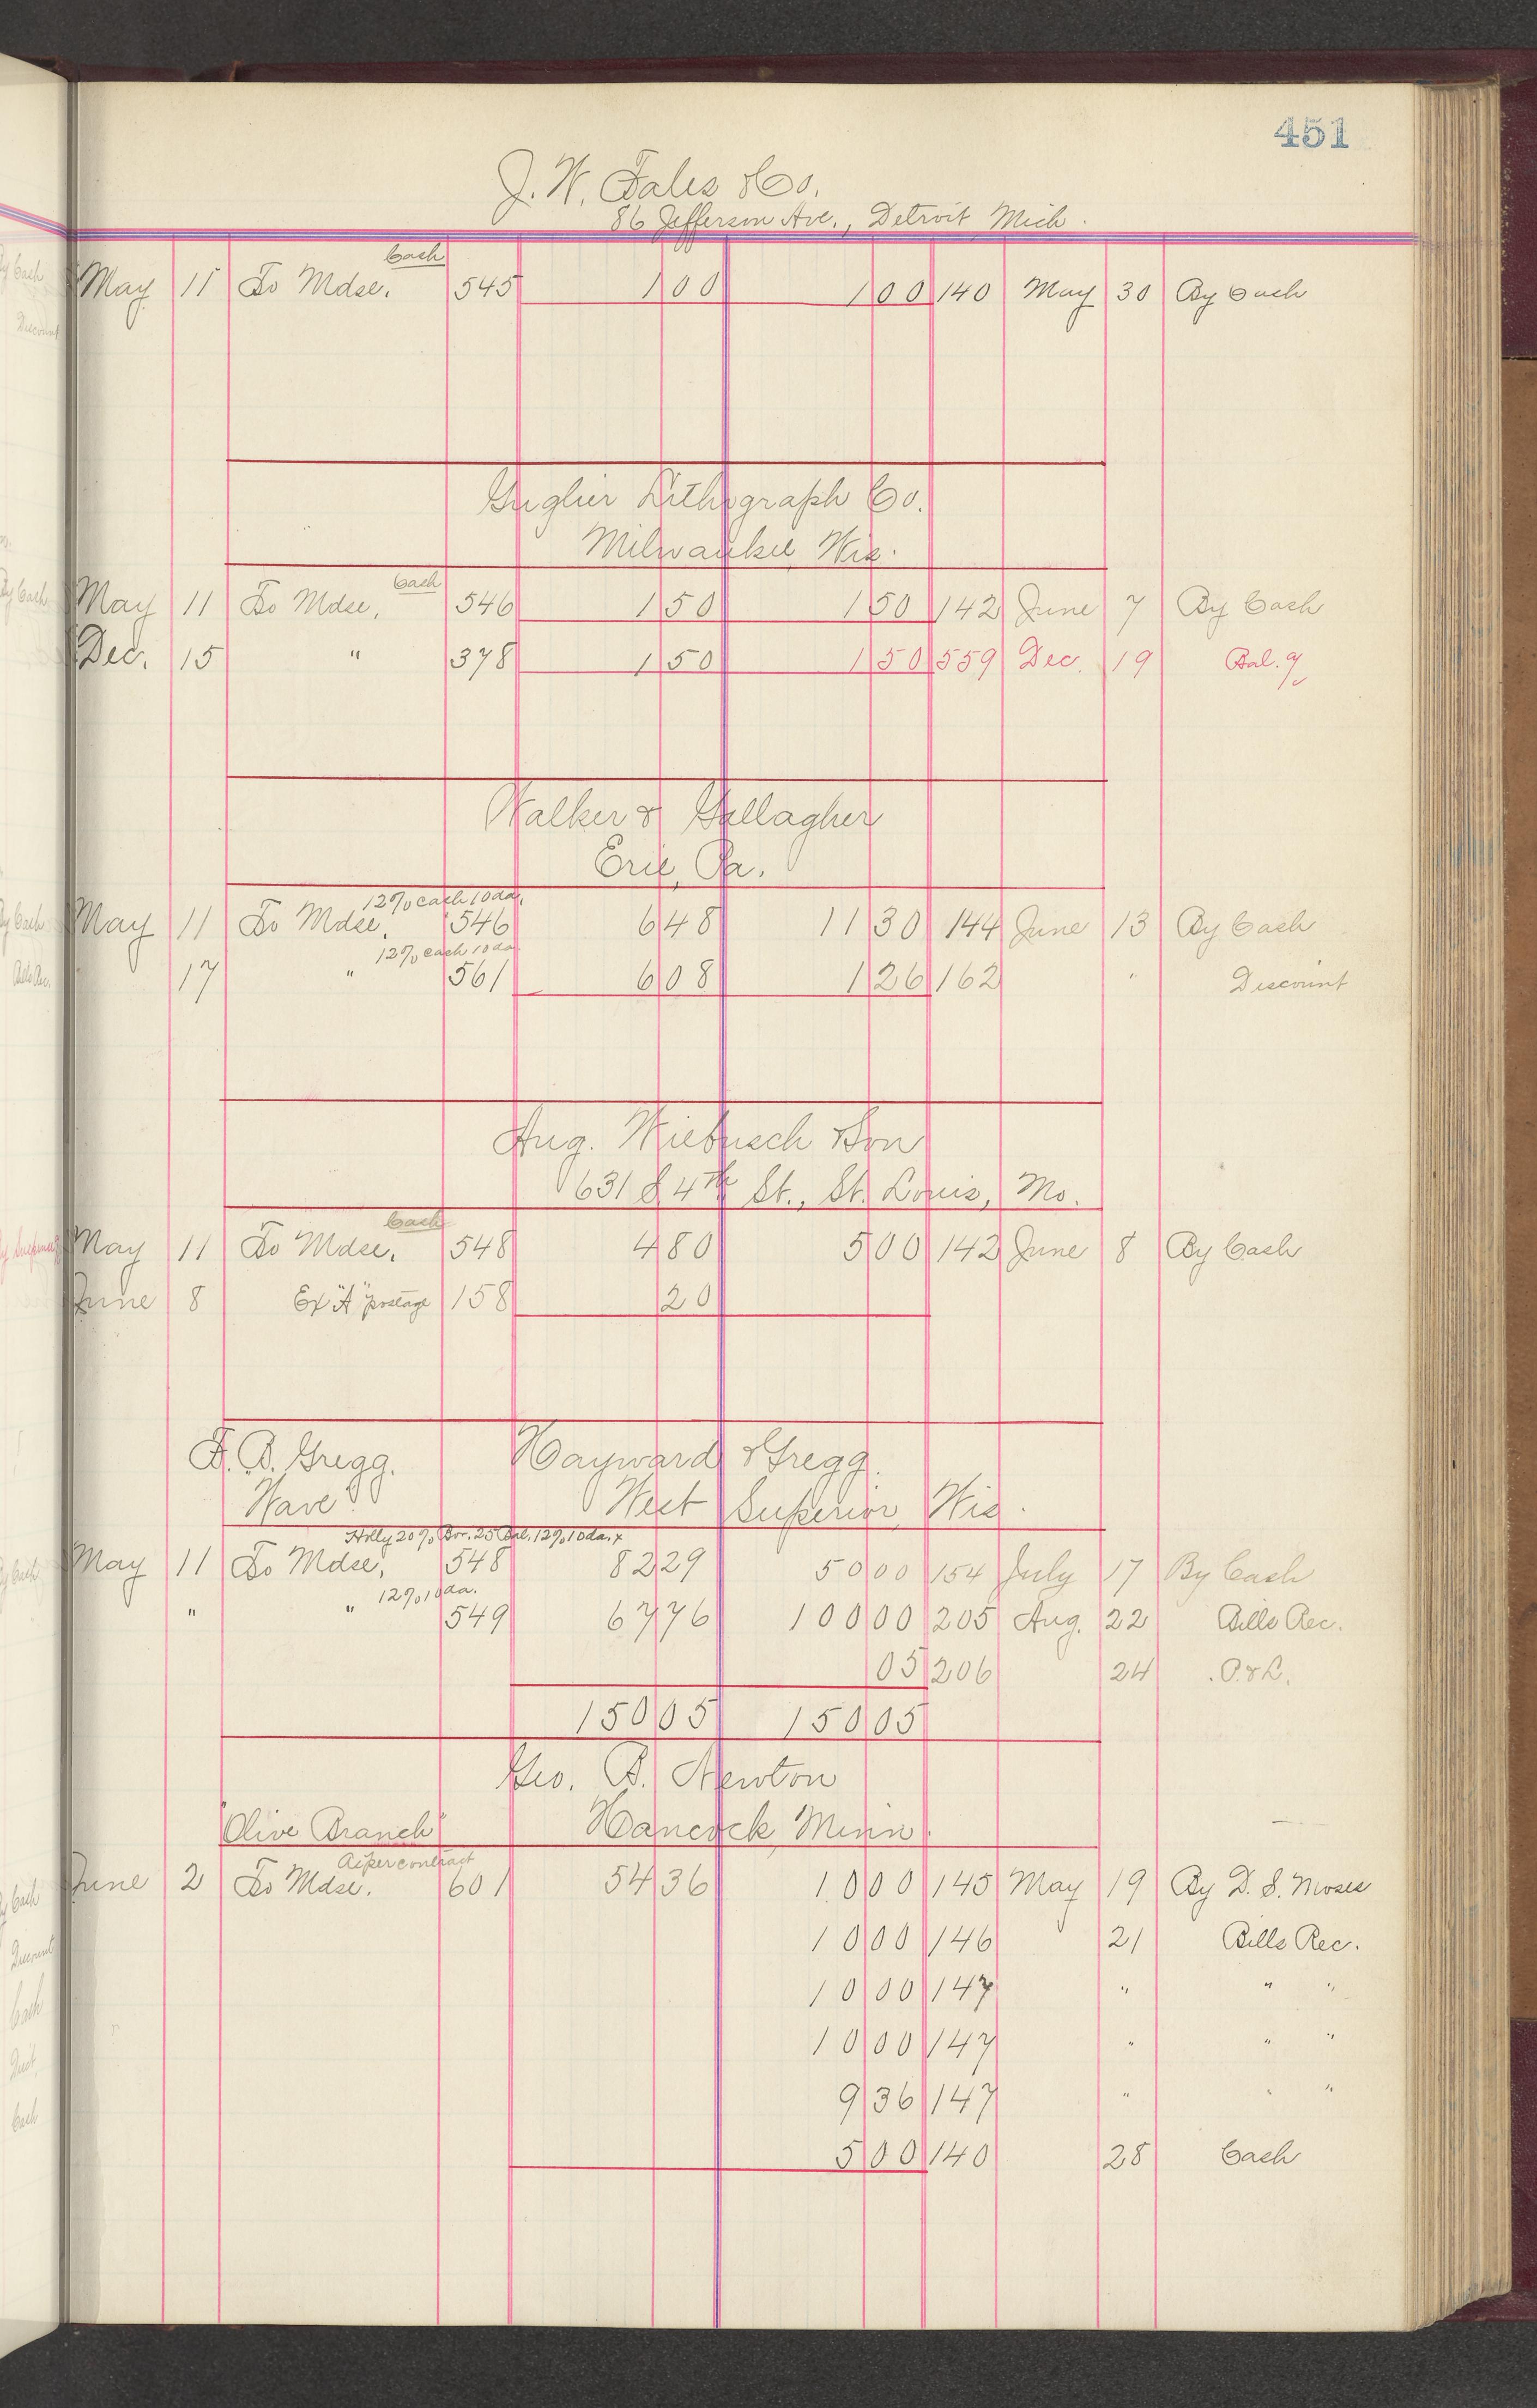 451
J. W. Fales & Co.
86 Jefferson Ave., Detroit Mich.
Cash
May 11 To Mdse. 545 1 00 1 00 140 May 30 By Cash
Gugler Lithograph Co.
Milwaukee Wis.
Cash
May 11 To Mdse. 546 1 50 1 50 142 June 7 By Cash
Dec. 15 " 378 1 50 1 50 559 Dec. 19 Bal.
Walker & Gallagher
Erie, Pa.
12% cash 10 da.
May 11 To Mdse. 546 6 48 11 30 144 June 13 By Cash
12% cash 10 da.
17 " 561 6 08 1 26 162 " Discount
Aug. Wiebusch & Son
631 S 4th St., St. Louis, Mo.
Cash
May 11 To Mdse. 548 4 80 5 00 142 June 8 By Cash
June 8 Ex "A" postage 158 20
F. B. Gregg. Hayward & Gregg.
Wave West Superior, Wis.
Holly 20% Bor. 25 Bal. 12% 10 da. x
May 11 To Mdse. 548 82 29 50 00 154 July 17 By Cash
12% 10 da.
" " 549 67 76 100 00 205 Aug. 22 Bills Rec.
05 206 24 P. & L.
150 05 150 05
Geo. B. Newton
"Olive Branch" Hancock Minn.
As per contract
June 2 To Mdse. 601 54 36 10 00 145 May 19 By D. S. Moses
10 00 146 21 Bills Rec.
10 00 147 " " "
10 00 147 " " "
9 36 147 " " "
5 00 140 28 Cash